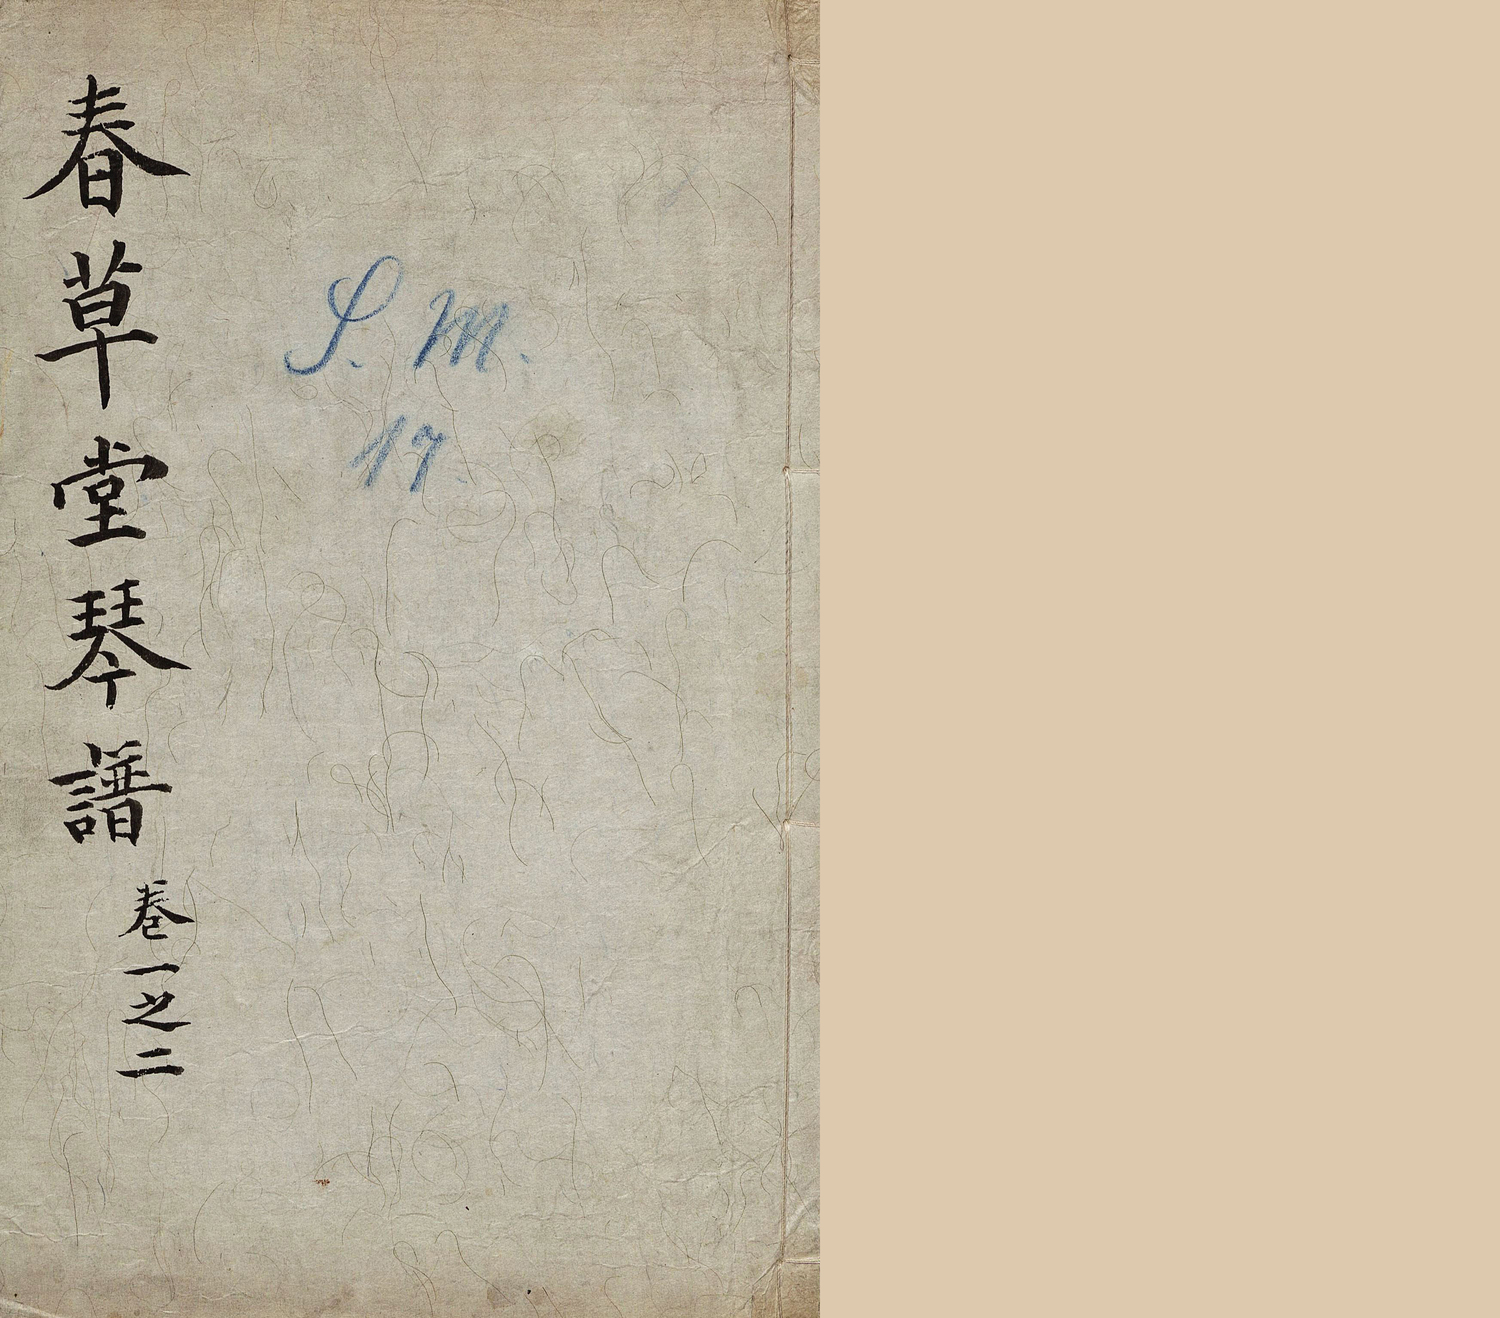 春草堂琴譜
卷一之二
S. M.
17.